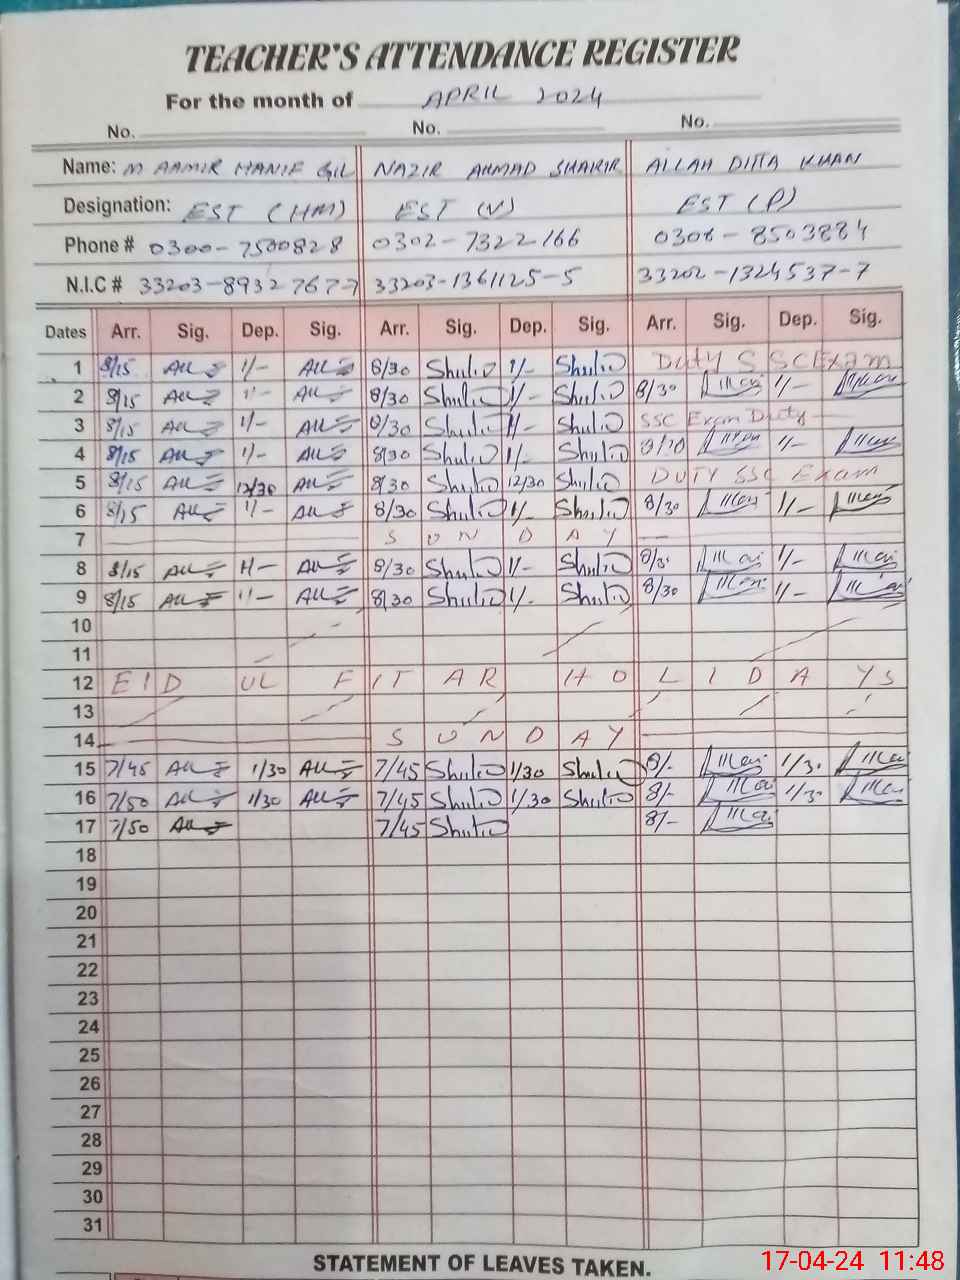 TEACHER'S ATTENDANCE REGISTER
For the month of APRIL 2024
No. No. No.
Name: M AAMIR HANIF GIL NAZIR AHMAD SHAKIR ALLAH DITTA KHAN
Designation: EST (HM) EST (V) EST (P)
Phone # 0300-7500828 0302-7322166 0308-8503884
N.I.C # 33203-8932767-7 33203-1361125-5 33202-1324537-7
Dates Arr. Sig. Dep. Sig. Arr. Sig. Dep. Sig. Arr. Sig. Dep. Sig.
1 8/15 1/- 8/30 1/- Duty SSC Exam
2 8/15 1/- 8/30 1/- 8/30 1/-
3 8/15 1/- 8/30 1/- SSC Exam Duty
4 8/15 1/- 8/30 1/- 1/-
5 8/15 12/30 8/30 12/30 DUTY SSC Exam
6 8/15 1/- 8/30 1/- 8/30 1/-
7 SUNDAY
8 8/15 1/- 8/30 1/- 1/-
9 8/15 1/- 8/30 1/- 8/30 1/-
10
11
12 EID UL FITAR HOLIDAYS
13
14 SUNDAY
15 7/45 1/30 7/45 1/30 8/- 1/30
16 7/50 1/30 7/45 1/30 8/- 1/30
17 7/50 7/45 8/-
18
19
20
21
22
23
24
25
26
27
28
29
30
31
STATEMENT OF LEAVES TAKEN.
17-04-24 11:48